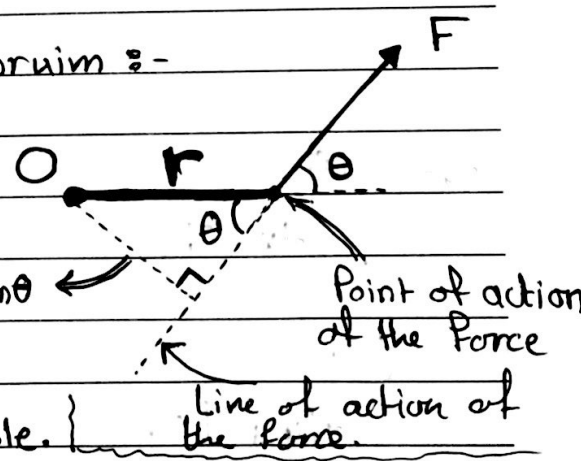 oruim :-
F
O r θ
θ
nθ
Point of action
of the Force
Line of action of
le. the force.